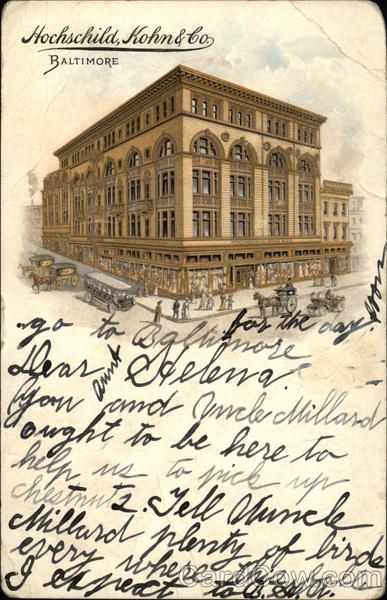 Hochschild, Kohn & Co.
BALTIMORE
Dear Aunt Helena.
You and Uncle Millard
ought to be here to
help us to pick up
chestnuts. Tell Uuncle
Millard plenty of birds
every where
I expect to
go to Baltimore
for the day.
CardCow.com